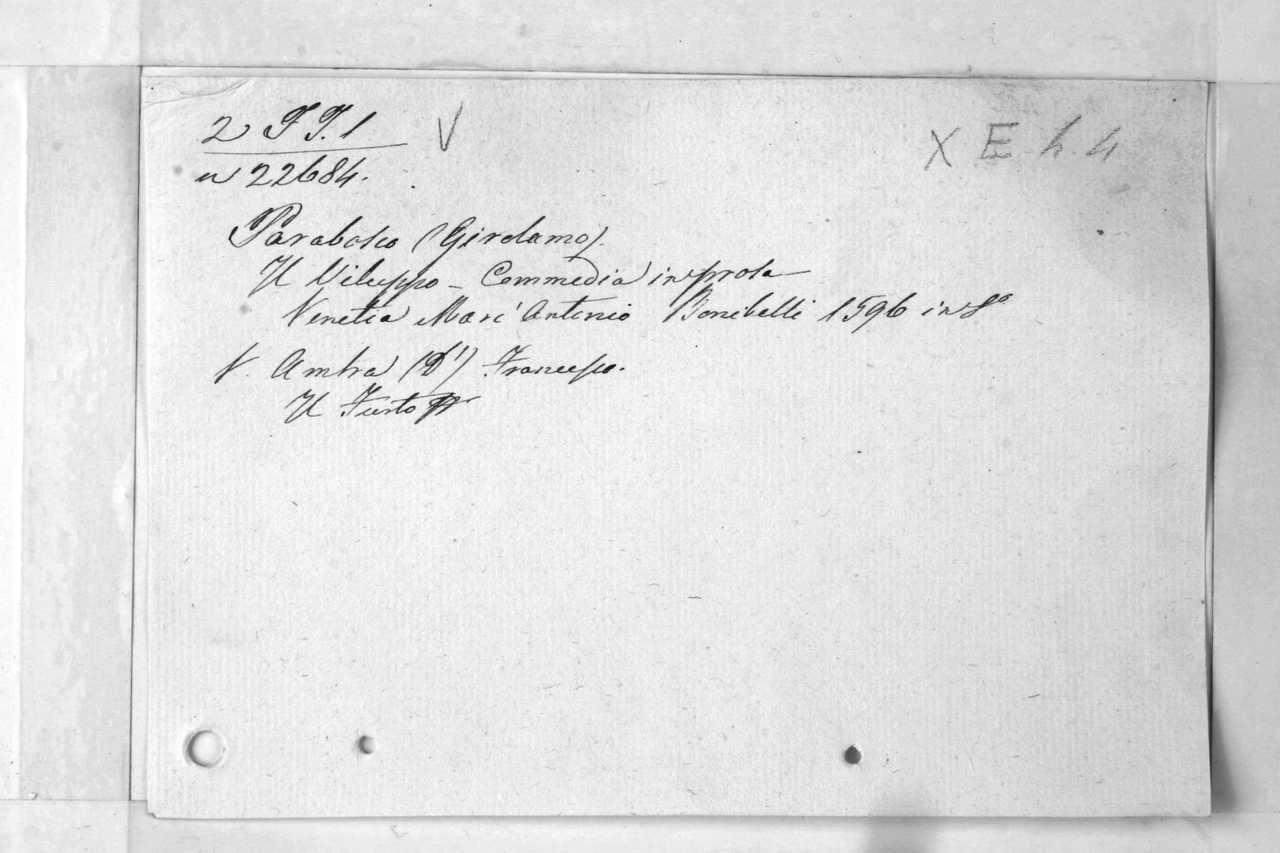 2 FF. 1 V X E. h. 4
n 22684.
Parabosco (Girolamo).
Il Viluppo - Commedia in prosa
Venetia Marc'Antonio Bonibelli 1596 in 8°
V. Ambra (D') Francesco.
Il Furto